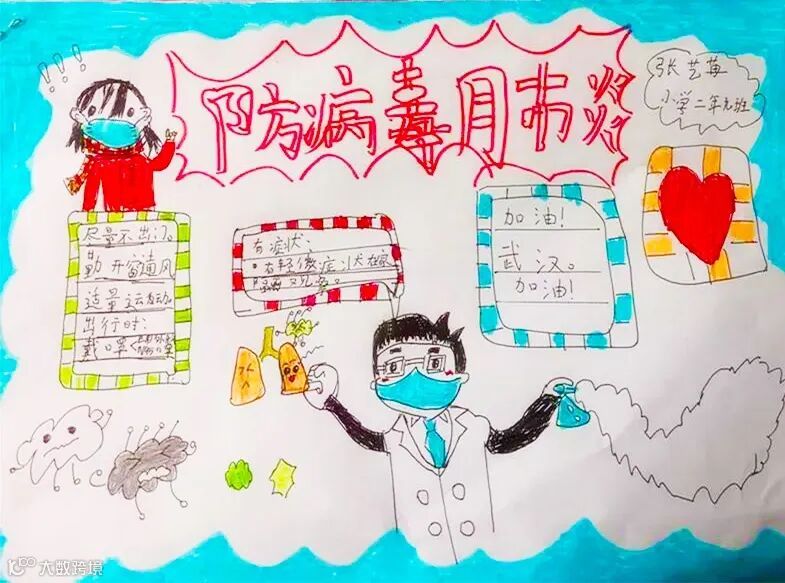 防病毒肺炎
张艺
小学二年班
尽量不出门。
勤开窗通风
适量运动
出行时:
戴口罩
有症状:
·有轻微症状
隔离
加油!
武汉。
加油!
!!!
大数跨境